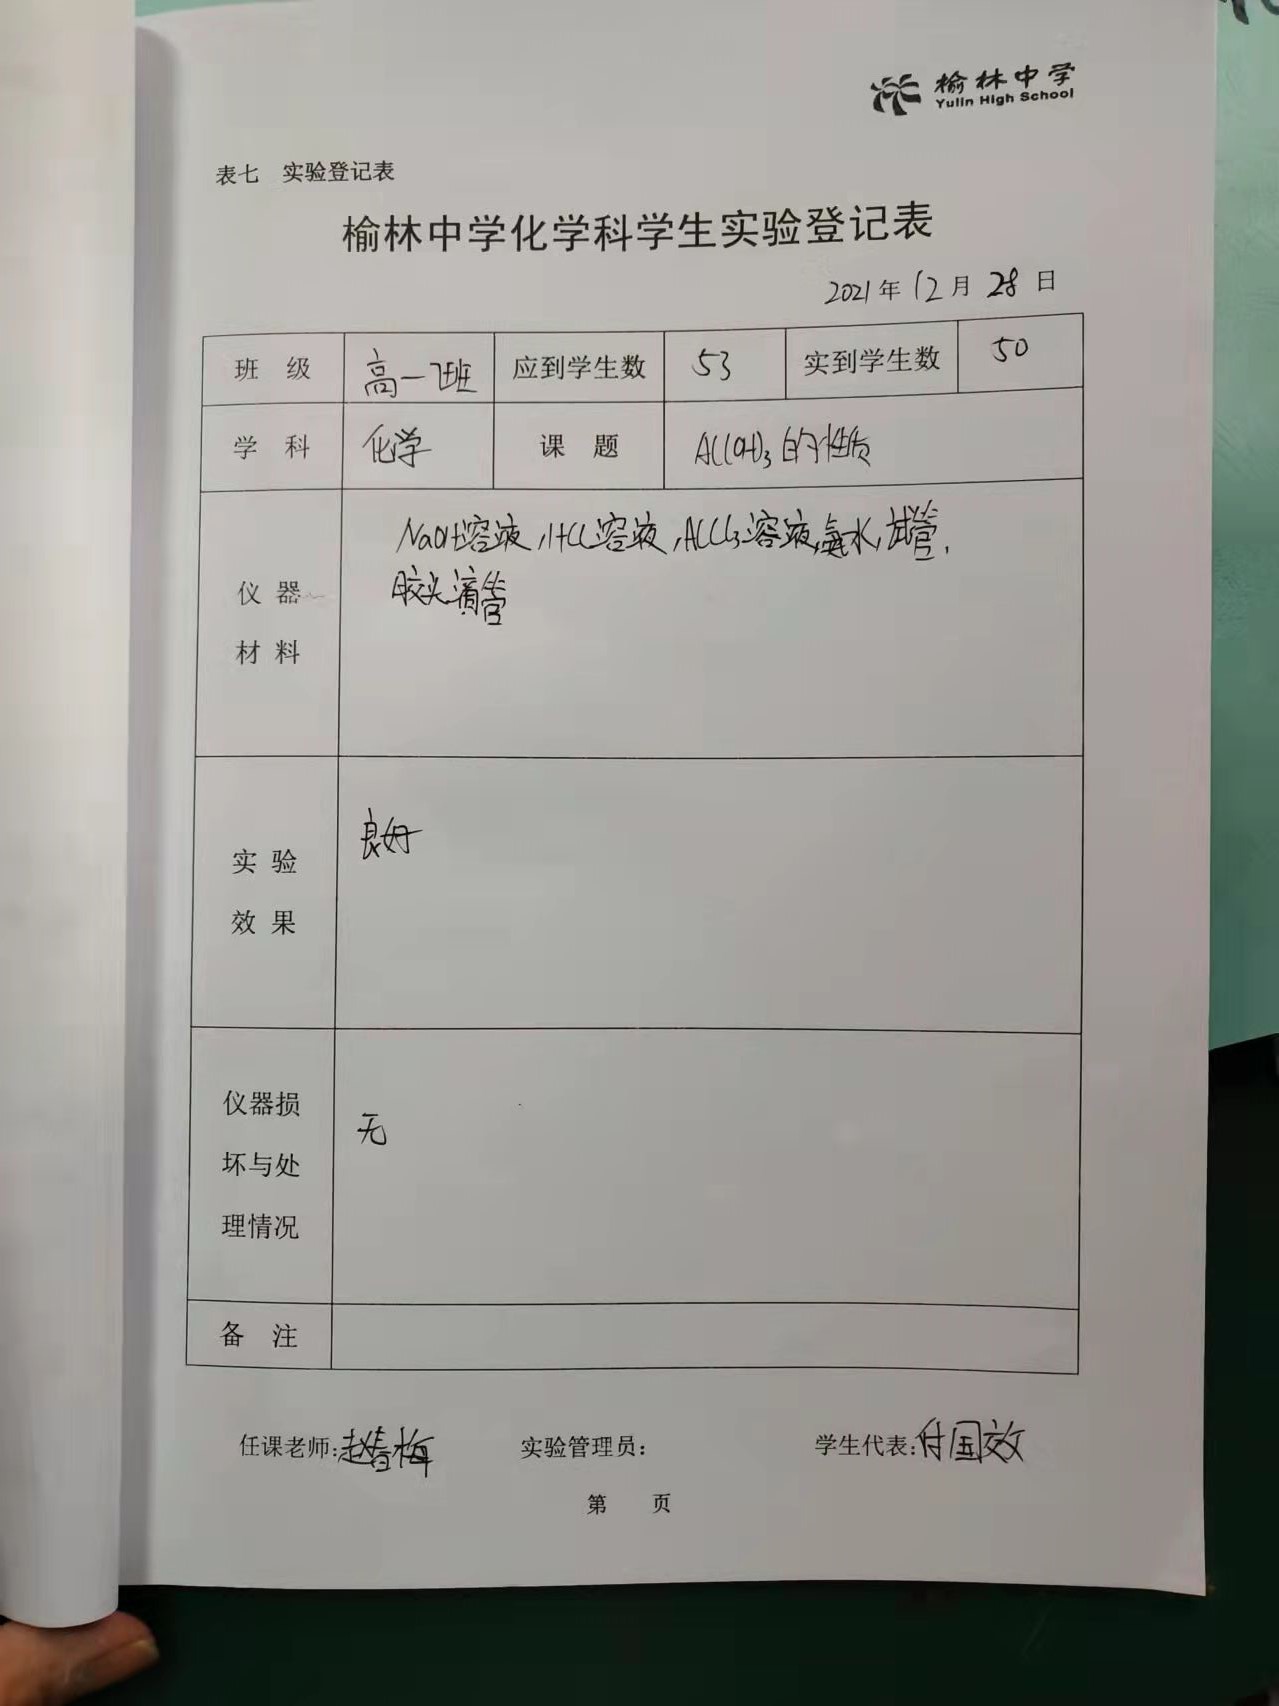 榆林中学
Yulin High School
表七 实验登记表
榆林中学化学科学生实验登记表
2021年12月28日
班 级 高一7班 应到学生数 53 实到学生数 50
学 科 化学 课 题 Al(OH)3的性质
仪 器
材 料
NaOH溶液,HCl溶液,AlCl3溶液,氨水,试管,
胶头滴管
实 验
效 果
良好
仪器损
坏与处
理情况
无
备 注
任课老师:赵春梅 实验管理员: 学生代表:付国效
第 页